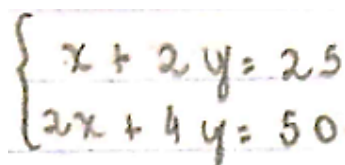 x + 2y = 25
2x + 4y = 50